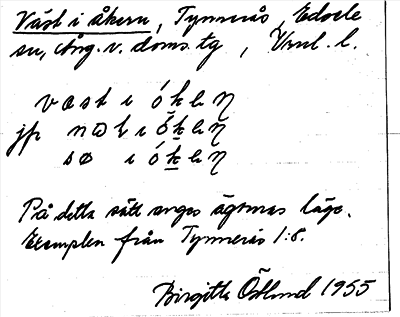 Väst i åkern, Tynnerås, Edsele
sn, Ång. v. doms. tg, Vrnl. l.
væst i ók ɐ ŋ
jfr nol i ók ɐ ŋ
sø i ók ɐ ŋ
På detta sätt anges ägornas läge.
Exemplen från Tynnerås 1:8.
Birgitta Östlund 1955